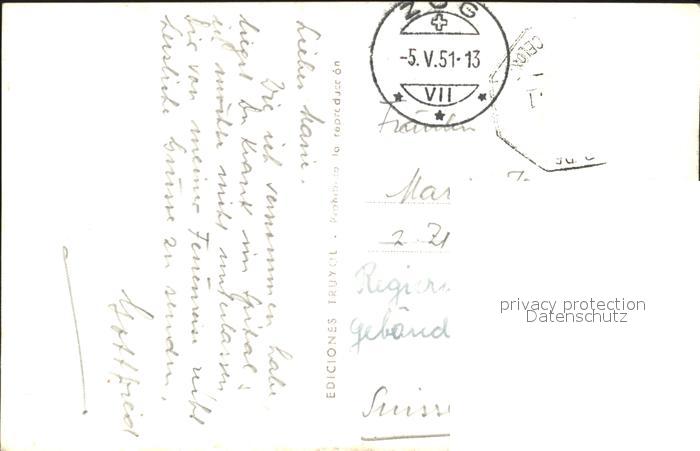 Liebes Marie.
Wie ich vernommen habe,
liegst Du krank im Spital;
ich möchte nicht unterlassen
Dir von meiner Ferienreise recht
herzliche Grüsse zu senden,
Gottfried
EDICIONES TRUYOL - Prohibida la reproducción
ZUG
-5.V.51-13
VII
Fräulein
Mar
Z
Regier
Gebäud
Suisse
privacy protection
Datenschutz